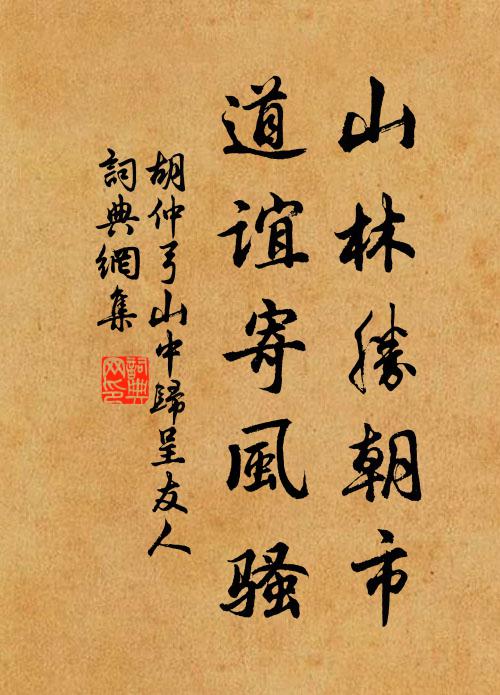 山林勝朝市
道誼寄風騷
胡仲弓山中歸呈友人
詞典網集
詞典网印